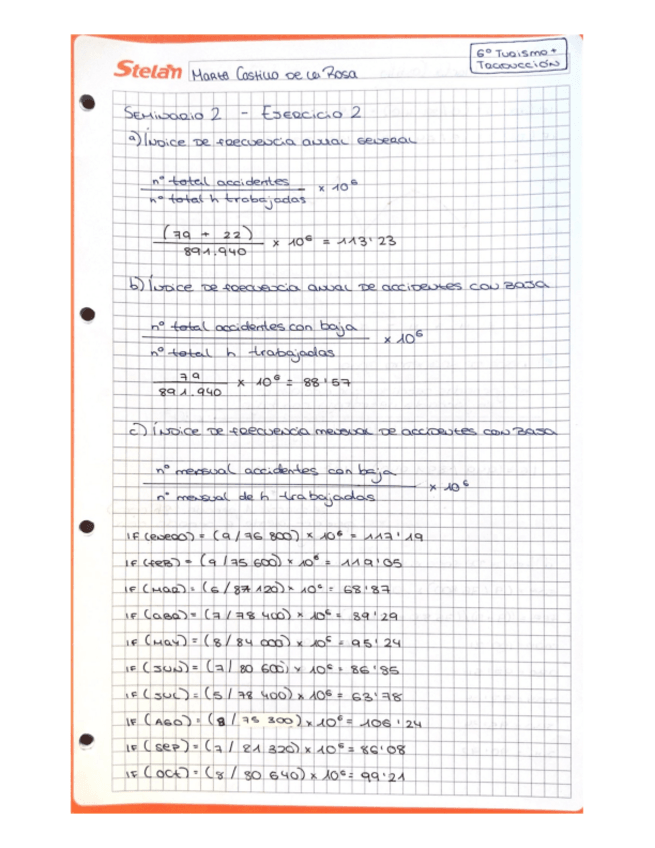 6º TURISMO +
TRADUCCIÓN
Stelan MARTA CASTILLO DE LA ROSA
SEMINARIO 2 - EJERCICIO 2
a) ÍNDICE DE FRECUENCIA ANUAL GENERAL
nº total accidentes
nº total h trabajadas
× 10⁶
(79 + 22)
891.940
× 10⁶ = 113'23
b) ÍNDICE DE FRECUENCIA ANUAL DE ACCIDENTES CON BAJA
nº total accidentes con baja
nº total h trabajadas
× 10⁶
79
891.940
× 10⁶ = 88'57
c) ÍNDICE DE FRECUENCIA MENSUAL DE ACCIDENTES CON BAJA
nº mensual accidentes con baja
nº mensual de h trabajadas
× 10⁶
IF (ENERO) = (9/76 800) × 10⁶ = 117'19
IF (FEB) = (9/75 600) × 10⁶ = 119'05
IF (MAR) = (6/87 120) × 10⁶ = 68'87
IF (ABR) = (7/78 400) × 10⁶ = 89'29
IF (MAY) = (8/84 000) × 10⁶ = 95'24
IF (JUN) = (7/80 600) × 10⁶ = 86'85
IF (JUL) = (5/78 400) × 10⁶ = 63'78
IF (AGO) = (8/75 300) × 10⁶ = 106'24
IF (SEP) = (7/81 320) × 10⁶ = 86'08
IF (OCT) = (8/80 640) × 10⁶ = 99'21